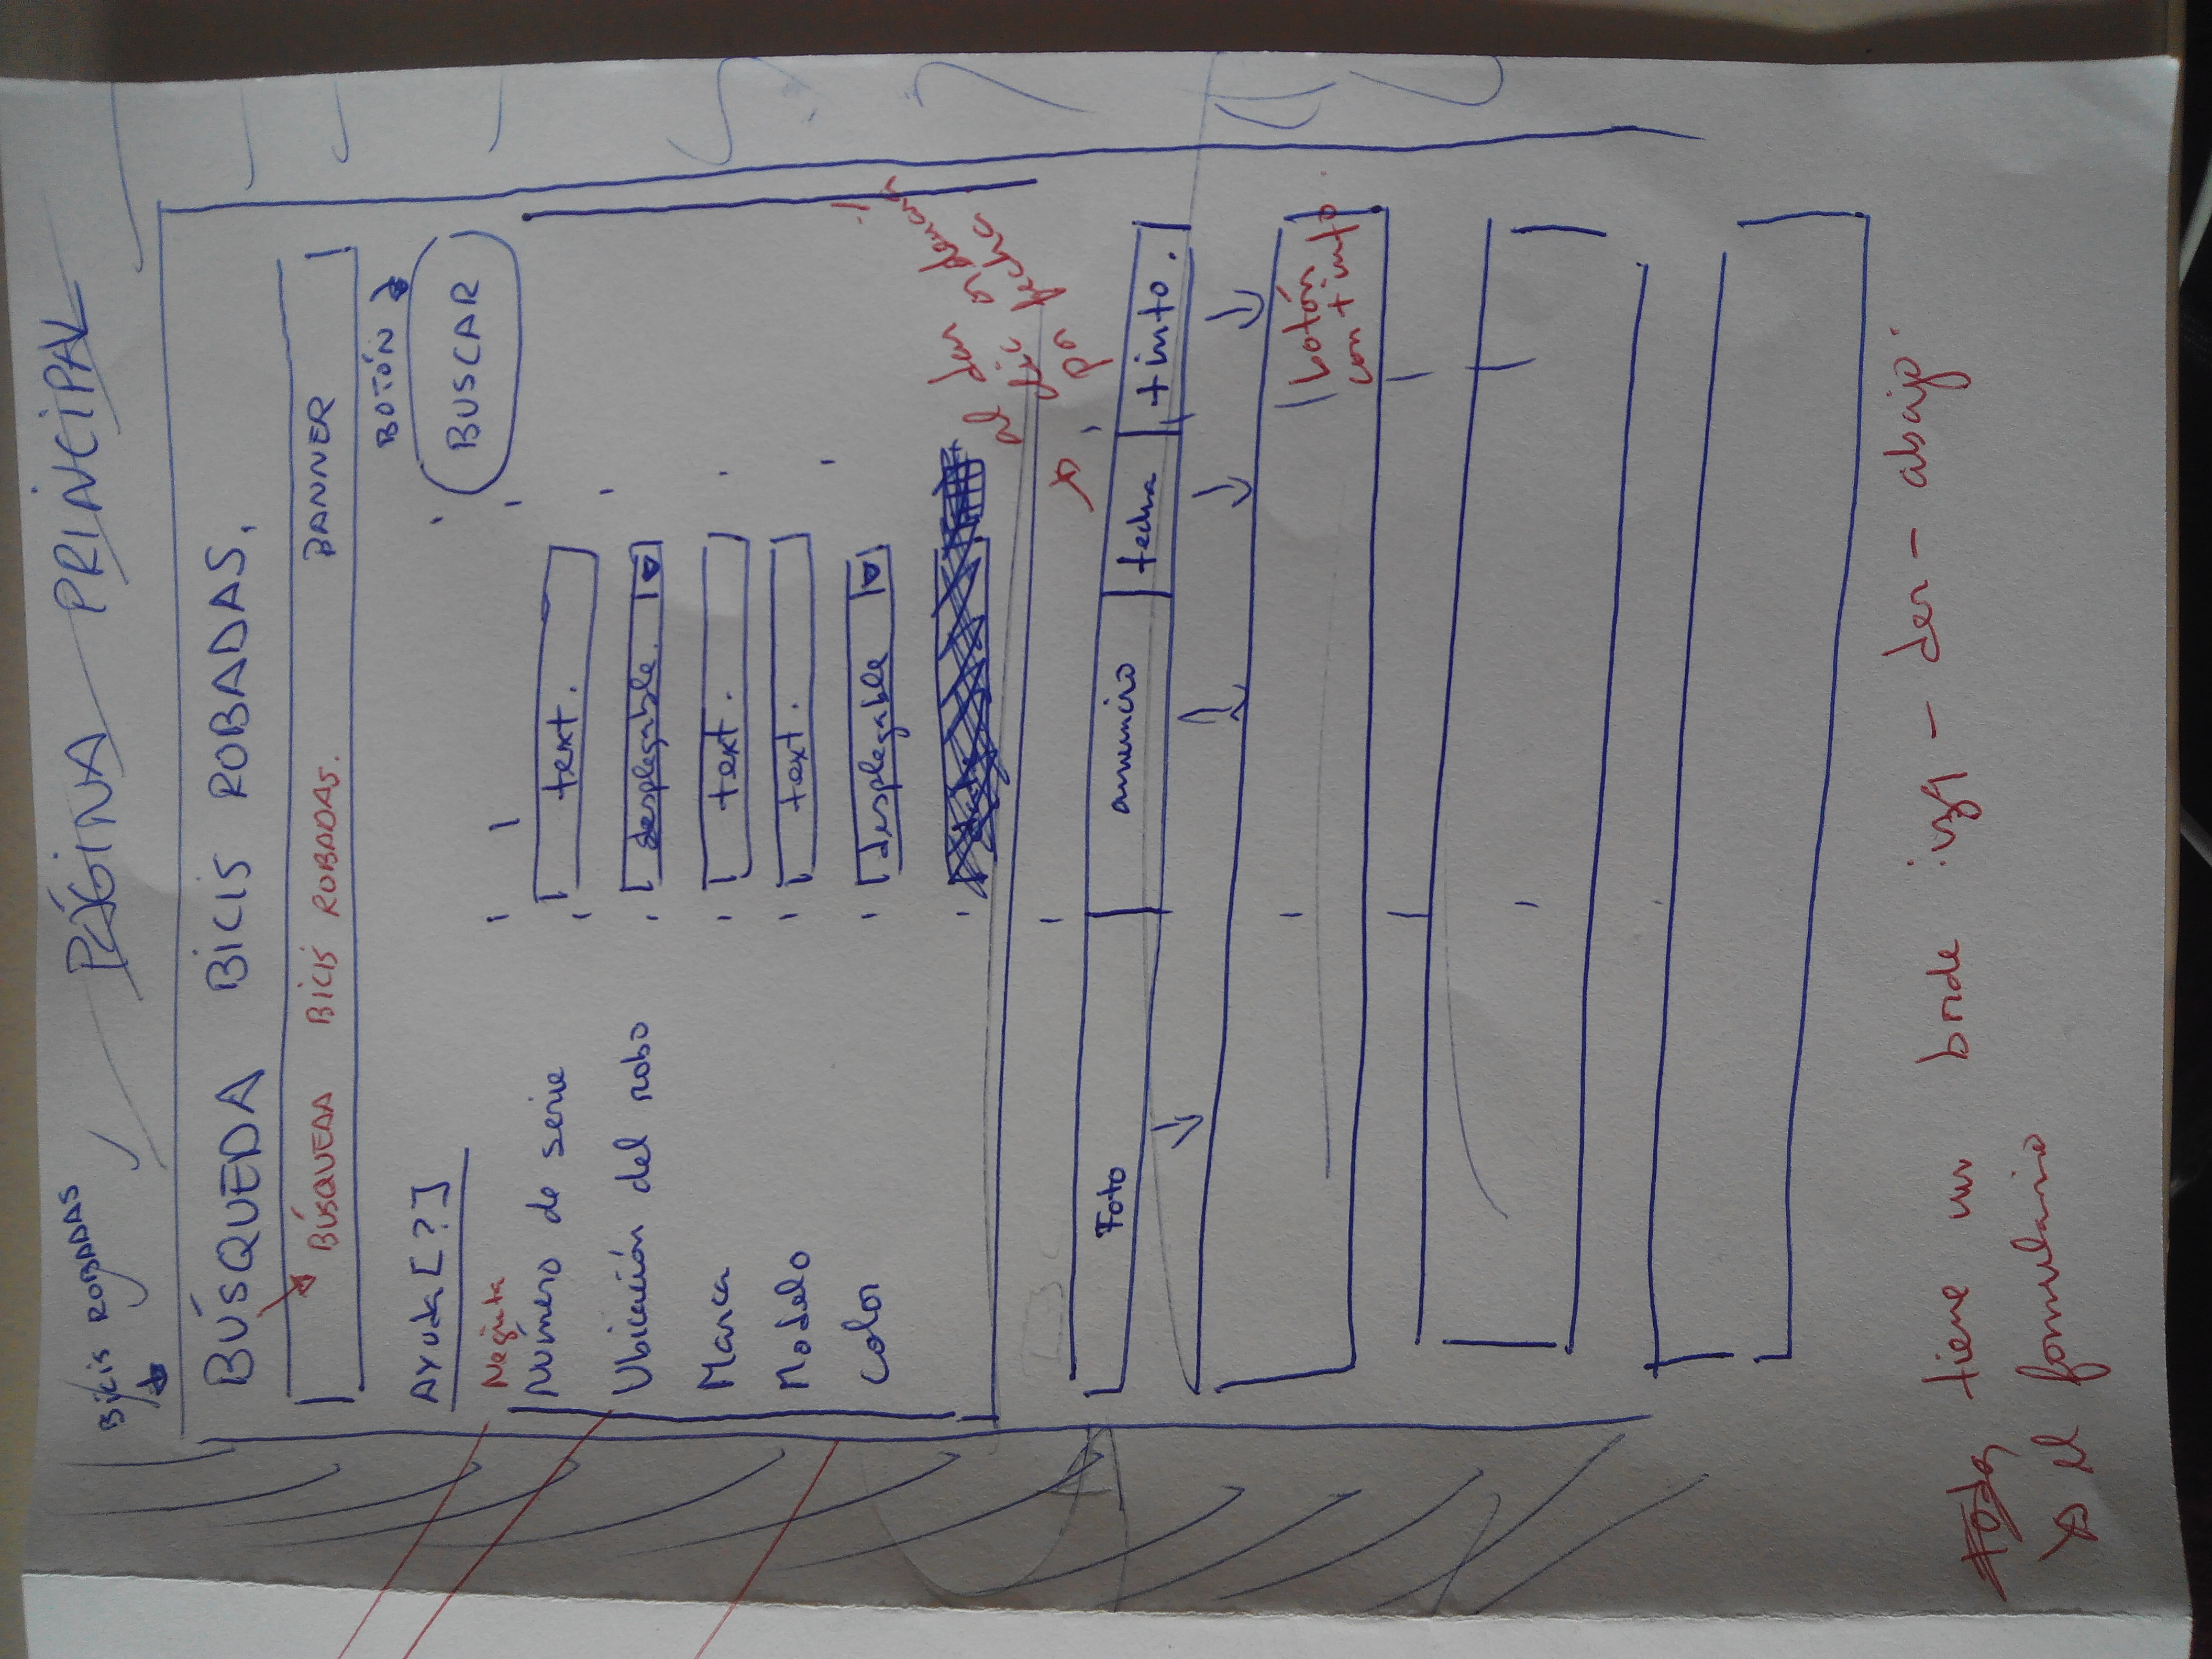 PÁGINA PRINCIPAL
BICIS ROBADAS
BÚSQUEDA BICIS ROBADAS.
BÚSQUEDA BICIS ROBADAS. BANNER
BOTÓN
AYUDA [?] BUSCAR
Negrita
Número de serie text.
Ubicación del robo desplegable.
Marca text.
Modelo text.
Color desplegable
al dar
clic ordenar
por fecha
Foto anuncio fecha + info.
botón
con + info.
tiene un borde izq - der - abajo.
el formulario